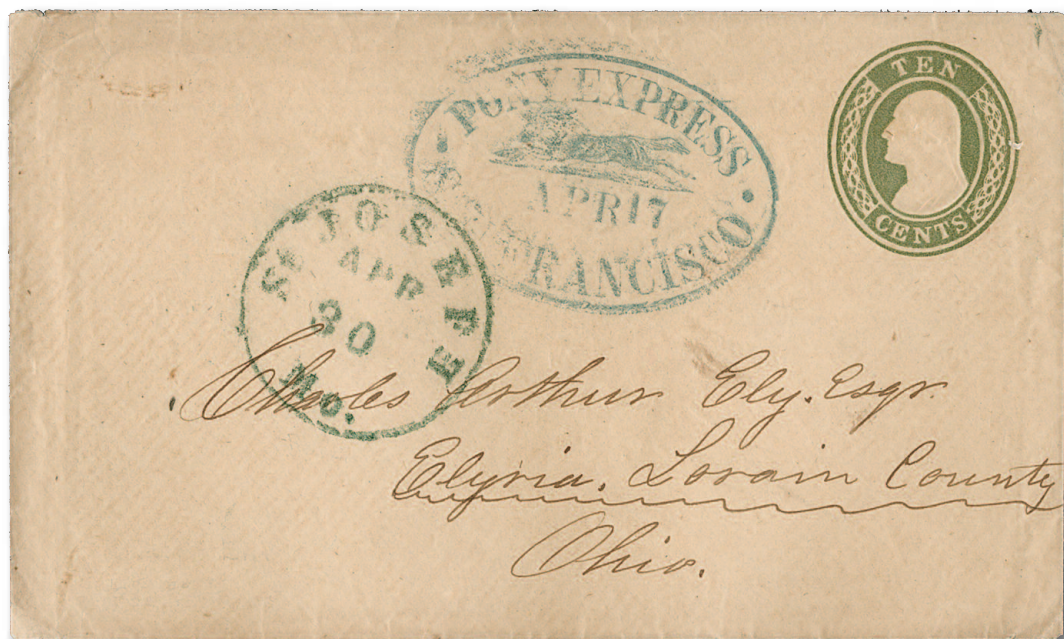 TEN
CENTS
PONY EXPRESS
APR 17
SAN FRANCISCO
ST JOSEPH
APR
30
Mo.
Charles Arthur Ely. Esqr.
Elyria, Lorain County
Ohio.